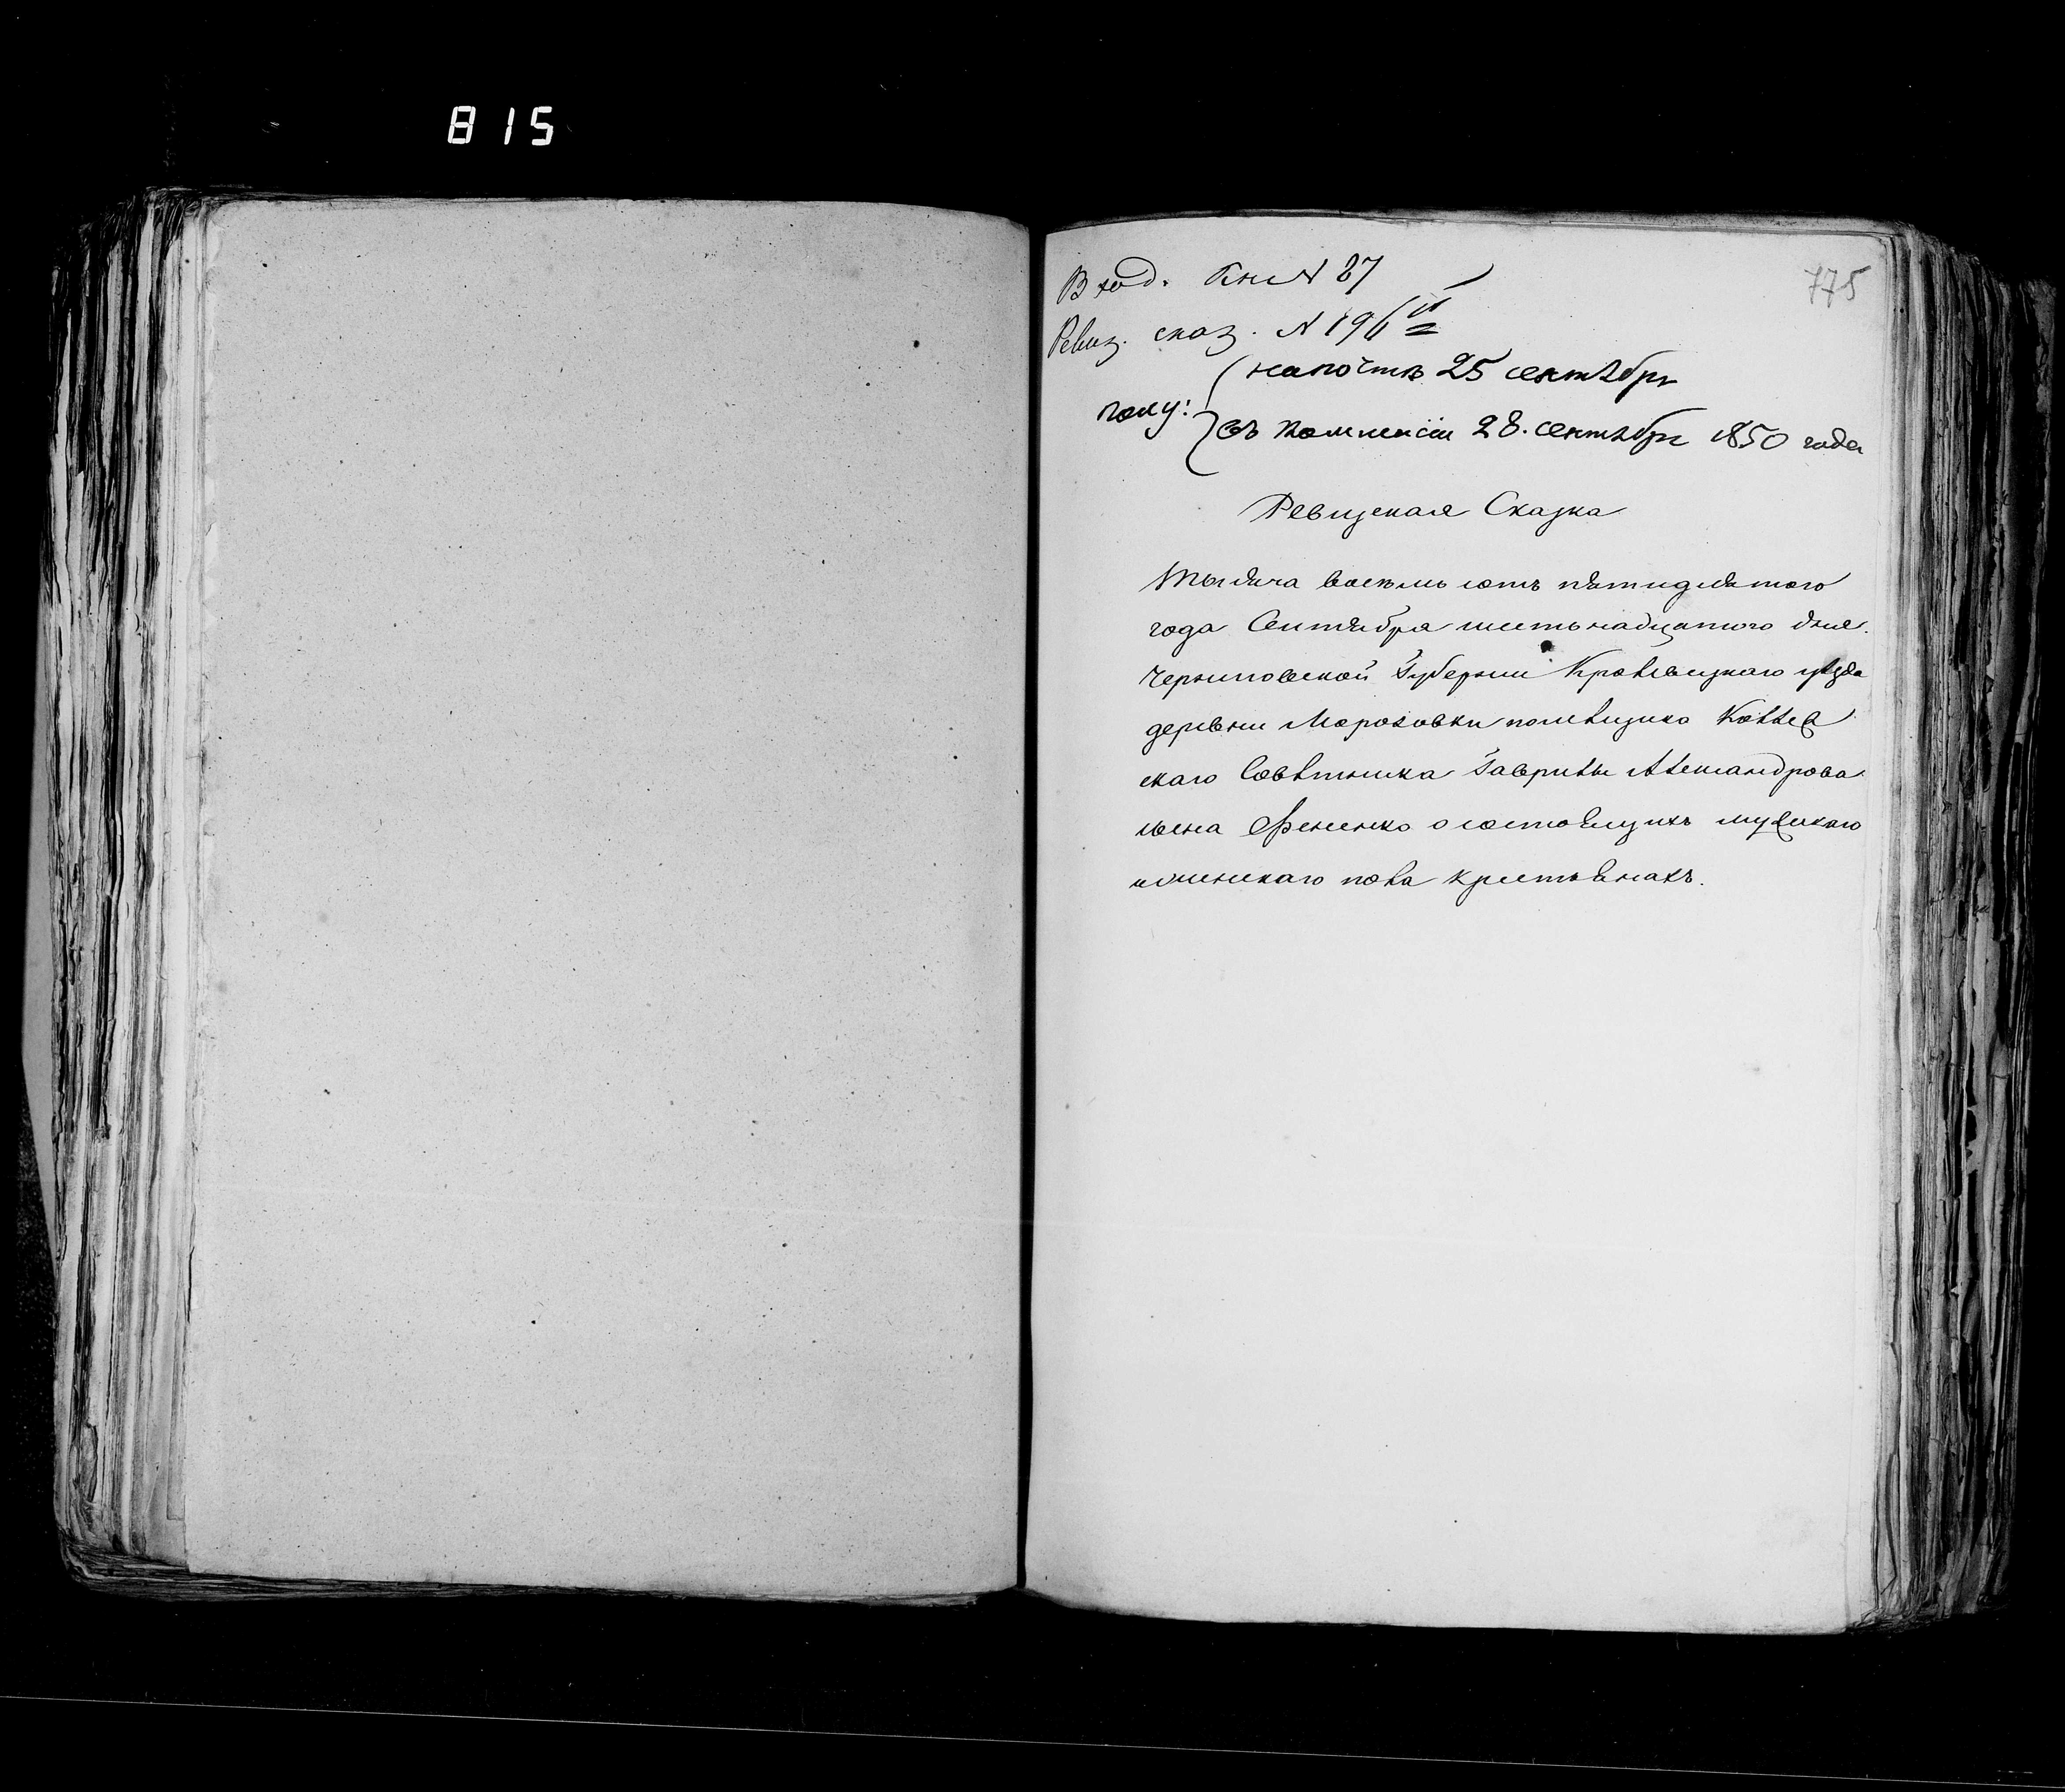 815
775
Вход. Кн. № 87
Ревиз. сказ. № 196
получ: на почтѣ 25 сентября
въ Коммисіи 28. сентября 1850 года
Ревизская Сказка
Тысяча восемь сотъ пятидесятого
года Сентября шестьнадцатого дня.
Черниговской Губернии Кролевецкаго уѣзда
деревни Морозовки помещика Коллеж
скаго Совѣтника Гаврилы Александрова
сына Фененко о состоящихъ мужскаго
и женскаго пола крестьянахъ.